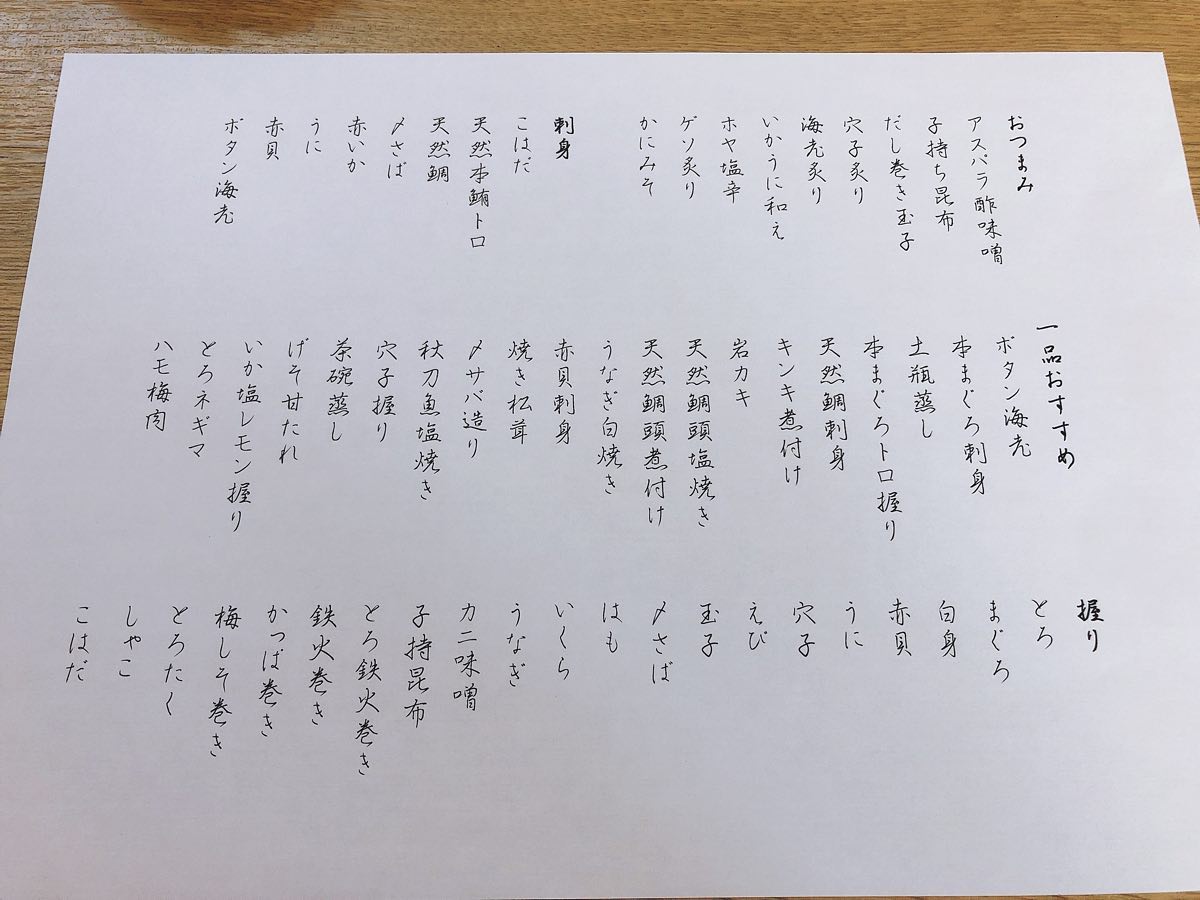 おつまみ
アスパラ酢味噌
子持ち昆布
だし巻き玉子
穴子炙り
海老炙り
いかうに和え
ホヤ塩辛
ゲソ炙り
かにみそ
刺身
こはだ
天然本鮪トロ
天然鯛
〆さば
赤いか
うに
赤貝
ボタン海老
一品おすすめ
ボタン海老
本まぐろ刺身
土瓶蒸し
本まぐろトロ握り
天然鯛刺身
キンキ煮付け
岩カキ
天然鯛頭塩焼き
天然鯛頭煮付け
うなぎ白焼き
赤貝刺身
焼き松茸
〆サバ造り
秋刀魚塩焼き
穴子握り
茶碗蒸し
げそ甘たれ
いか塩レモン握り
とろネギマ
ハモ梅肉
握り
とろ
まぐろ
白身
赤貝
うに
穴子
えび
玉子
〆さば
はも
いくら
うなぎ
カニ味噌
子持昆布
とろ鉄火巻き
鉄火巻き
かっぱ巻き
梅しそ巻き
とろたく
しゃこ
こはだ